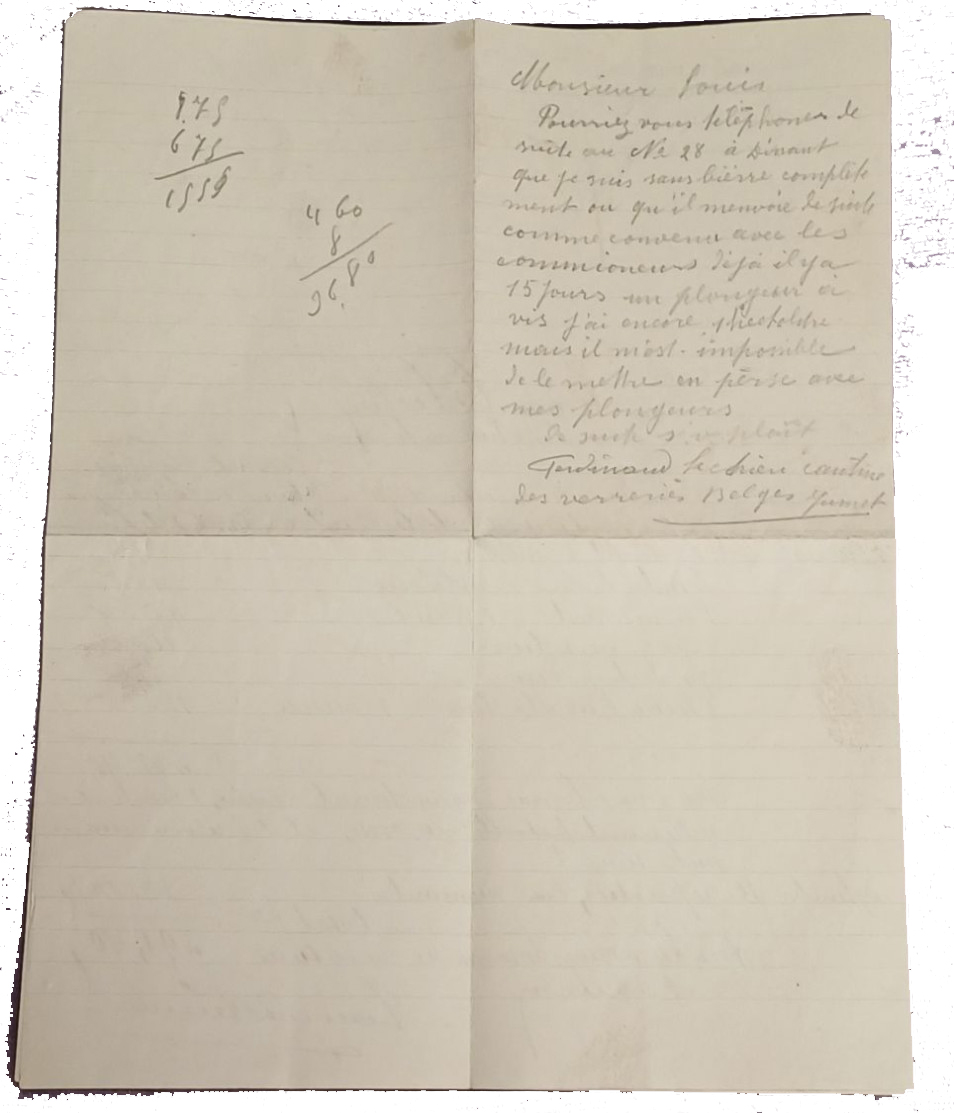 975
675
1559
4 60
8
36.80
Monsieur Louis
Pourriez vous télèphoner de
suite au No 28 à Dinant
que je suis sans bièrre complete
ment ou qu'il menvoie de suite
comme convenu avec les
commioneurs déjà il y a
15 jours un plongeur à
vis j'ai encore 1 hectolitre
mais il m'est impossible
de le mettre en pèrse avec
mes plongeurs
de suite s'v plait
Ferdinand Lechien cantine
des verreriès Belges Jumet